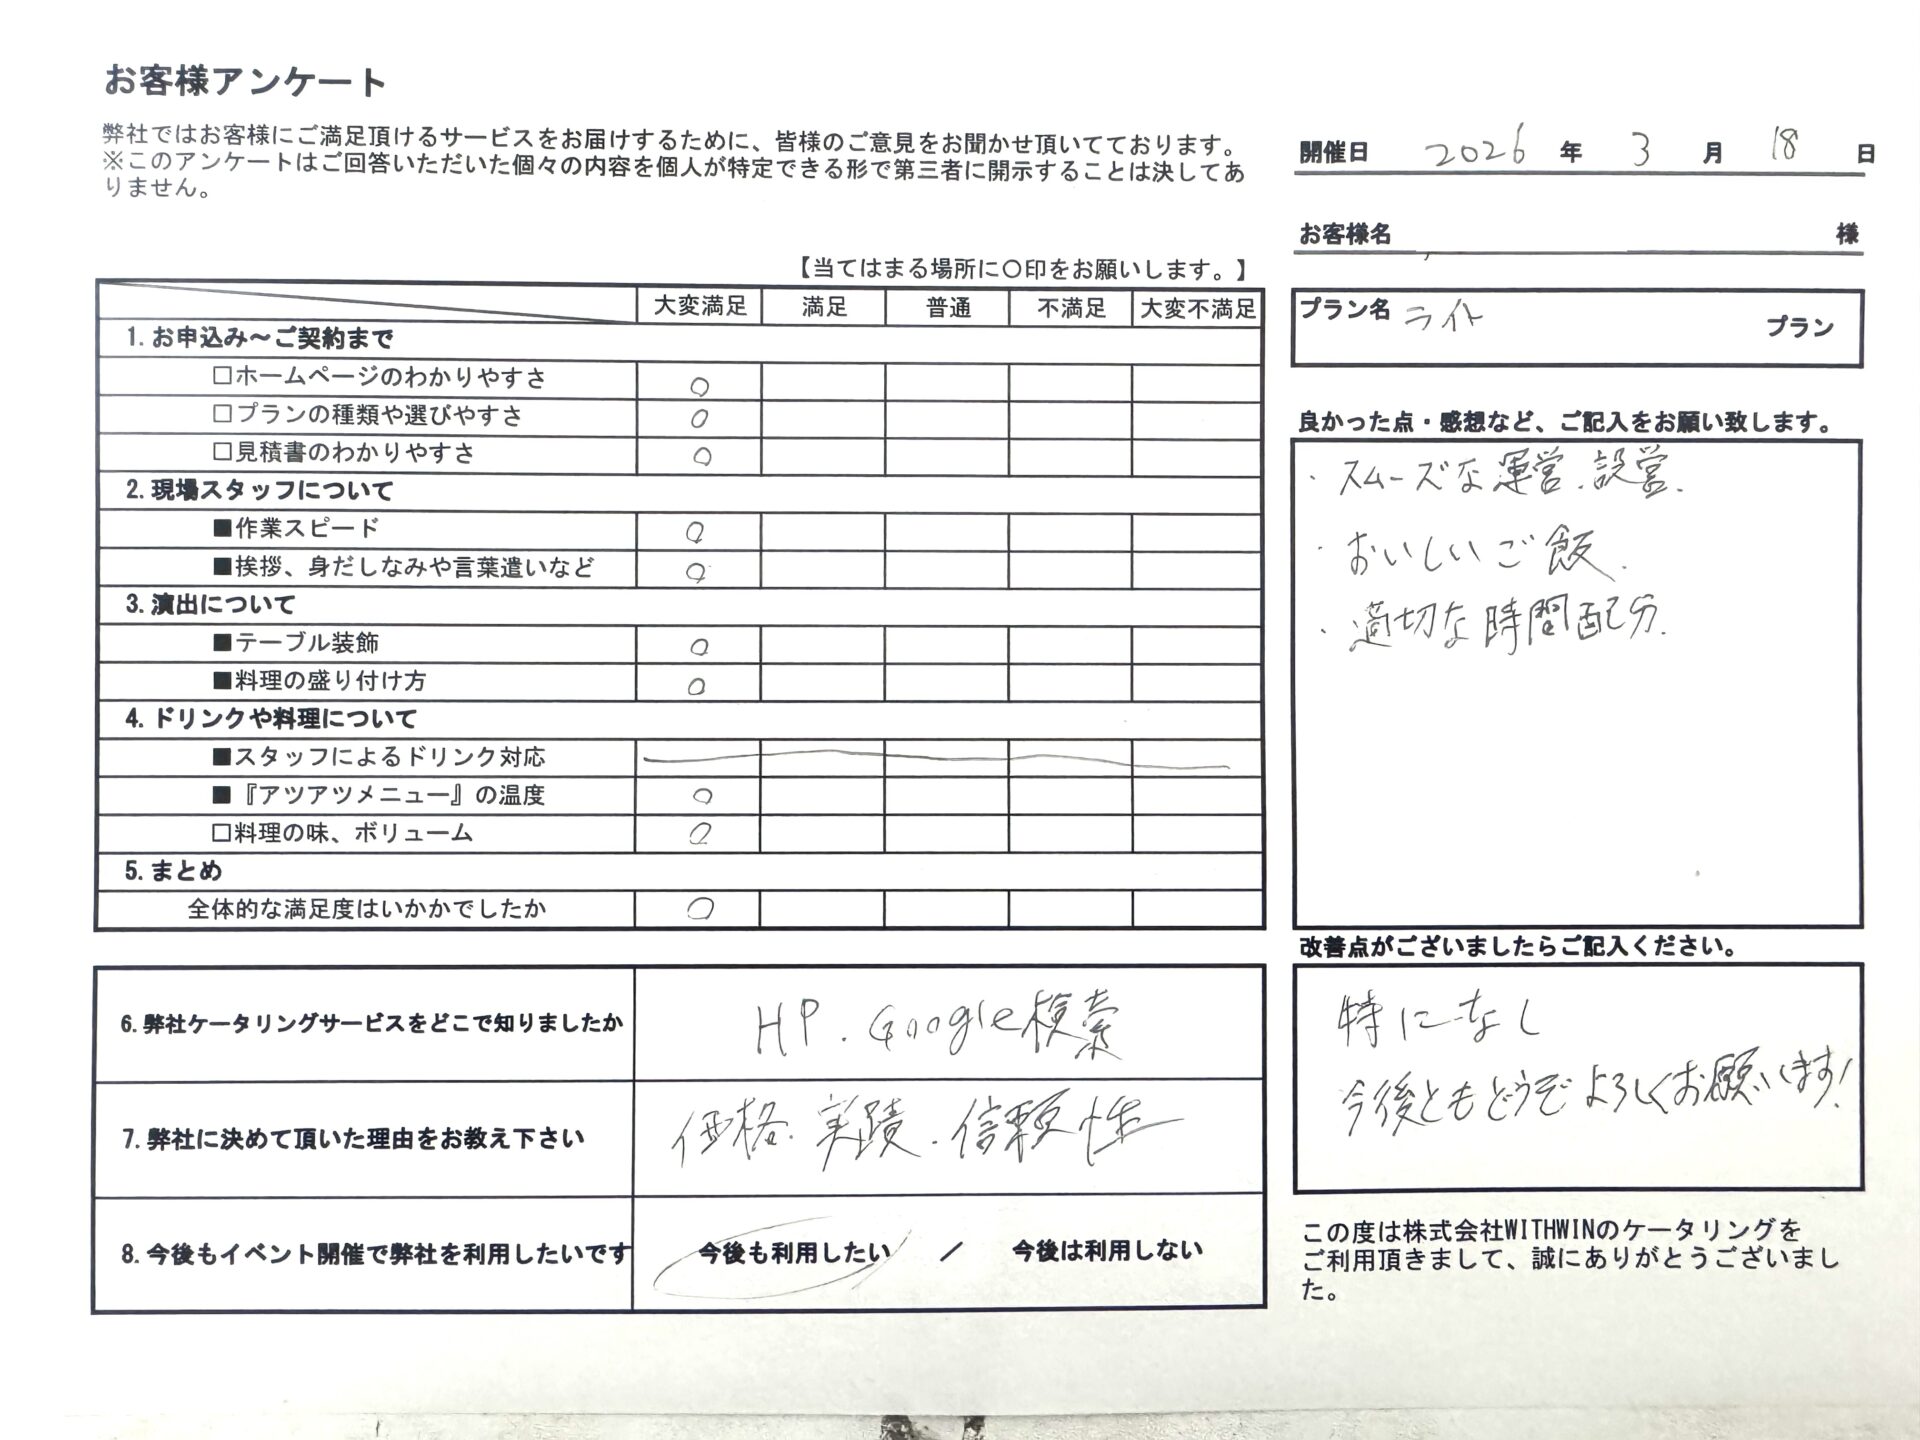 お客様アンケート
弊社ではお客様にご満足頂けるサービスをお届けするために、皆様のご意見をお聞かせ頂いてております。
※このアンケートはご回答いただいた個々の内容を個人が特定できる形で第三者に開示することは決してあ
りません。
【当てはまる場所に〇印をお願いします。】
大変満足 満足 普通 不満足 大変不満足
1. お申込み～ご契約まで
□ホームページのわかりやすさ ○
□プランの種類や選びやすさ ○
□見積書のわかりやすさ ○
2. 現場スタッフについて
■作業スピード ○
■挨拶、身だしなみや言葉遣いなど ○
3. 演出について
■テーブル装飾 ○
■料理の盛り付け方 ○
4. ドリンクや料理について
■スタッフによるドリンク対応
■『アツアツメニュー』の温度 ○
□料理の味、ボリューム ○
5. まとめ
全体的な満足度はいかかでしたか ○
6. 弊社ケータリングサービスをどこで知りましたか HP. Google検索
7. 弊社に決めて頂いた理由をお教え下さい 価格. 実績. 信頼性
8. 今後もイベント開催で弊社を利用したいです 今後も利用したい ／ 今後は利用しない
開催日 2026 年 3 月 18 日
お客様名 様
プラン名 ライト プラン
良かった点・感想など、ご記入をお願い致します。
・スムーズな運営.設営.
・おいしいご飯.
・適切な時間配分.
改善点がございましたらご記入ください。
特になし
今後ともどうぞよろしくお願いします!
この度は株式会社WITHWINのケータリングを
ご利用頂きまして、誠にありがとうございまし
た。